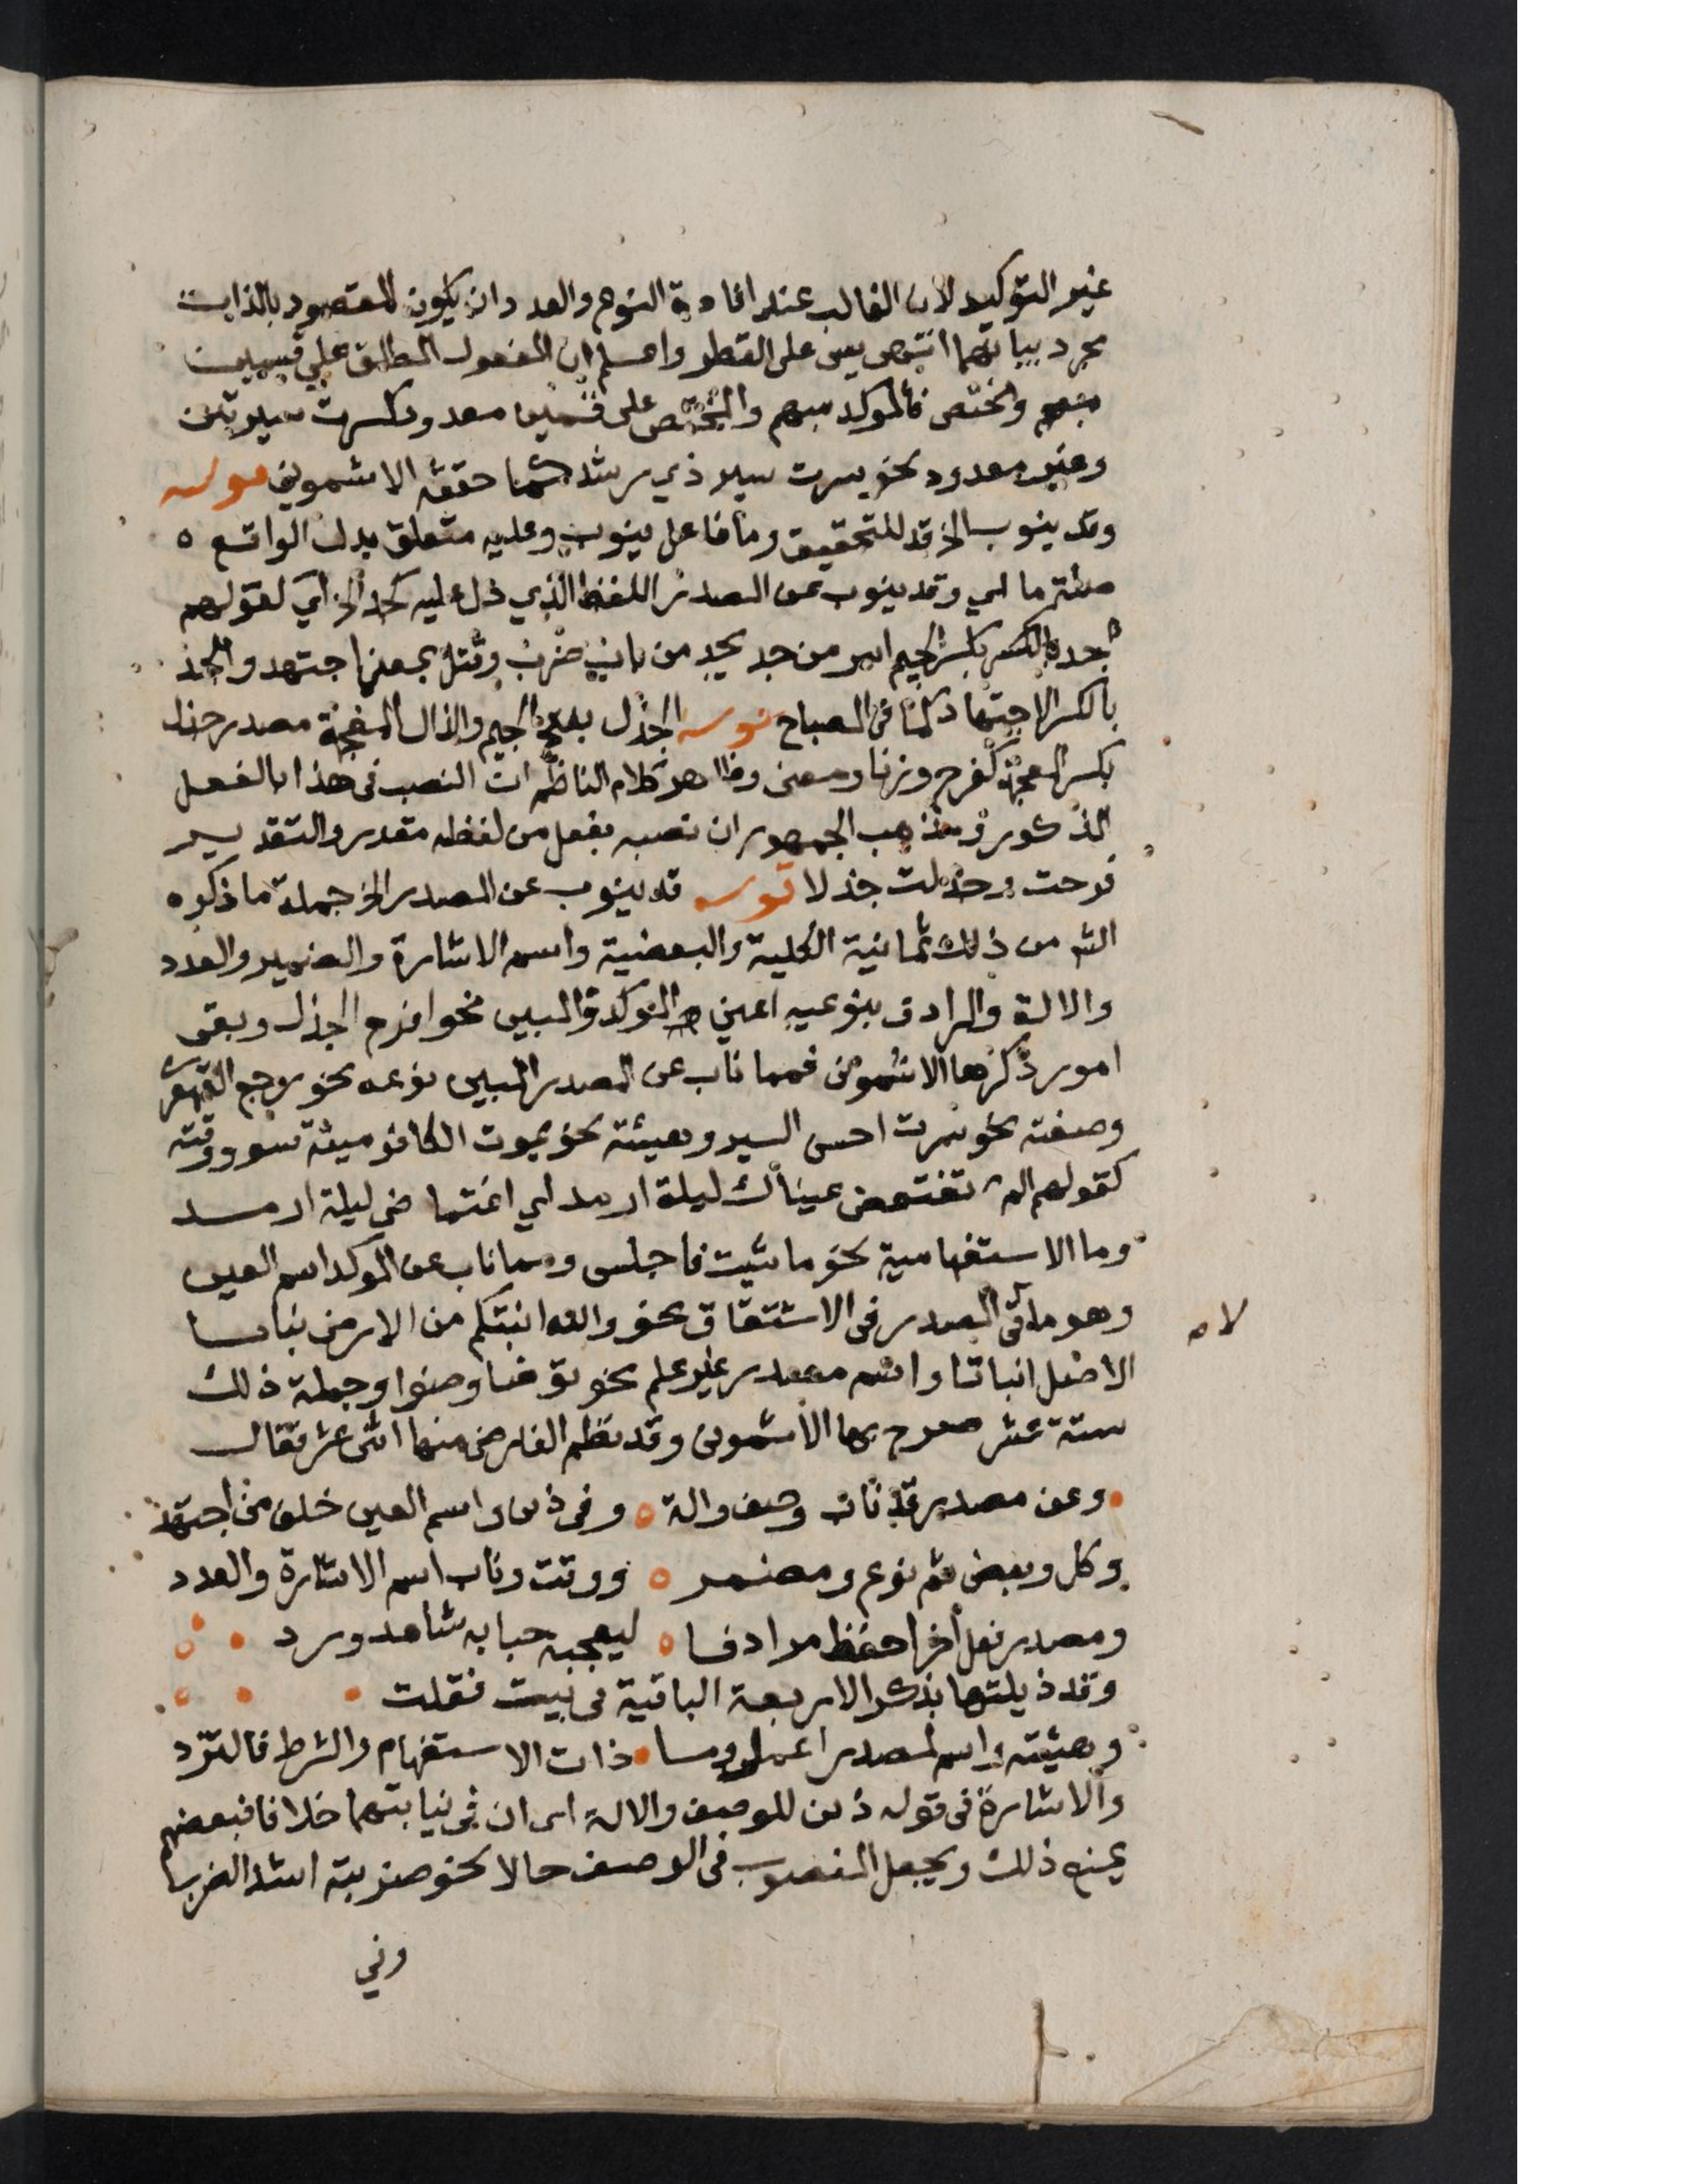 غير التوكيد لان الغالب عند افادة النوع والعدد ان يكون المقصود بالذات
مجرد بيانهما انتهى يس على القطر واعلم ان المفعول المطلق على قسمين
مبهم ومختص فالموكد مبهم والمختص على قسمين معدود كسرت سيرتين
وغير معدود نحو سرت سير ذي رشد كما حققه الاشموني قوله
وقد ينوب الخ قد للتحقيق وما فاعل ينوب وعليه متعلق بدل الواقع
صلة ما اي وقد ينوب عن المصدر اللفظ الذي دل عليه كجد الخ اي كقولهم
جد بكسر الجيم امر من جد يجد من باب ضرب وقتل بمعنى اجتهد والجد
بالكسر الاجتهاد كما في المصباح قوله الجذل بفتح الجيم والذال المعجمة مصدر جذل
بكسر المعجمة كفرح وزنا ومعنى وظاهر كلام الناظم ان النصب في هذا بالفعل
المذكور ومذهب الجمهور ان نصبه بفعل من لفظه مقدر والتقدير
فرحت وجذلت جذلا قوله قد ينوب عن المصدر الخ جملة ما ذكره
الش من ذلك ثمانية الكلية والبعضية واسم الاشارة والضمير والعدد
والالة والمرادف بنوعيه اعني الموكد والمبين نحو افرح الجذل وبقى
امور ذكرها الاشموني فمما ناب عن المصدر المبين نوعه نحو رجع القهقرى
وصفته نحو سرت احسن السير وهيئته نحو يموت الكافر ميتة سوء ووقته
كقولهم الم تغتمض عيناك ليلة ارمد اي اغتماض ليلة ارمد
وما الاستفهامية نحو ما شيت فاجلس ومما ناب عن الموكد اسم العين
وهو ملاقى المصدر في الاشتقاق نحو والله انبتكم من الارض نباتا
لاه
الاصل انباتا واسم مصدر غير علم نحو توضا وضوا وجملة ذلك
ستة عشر صرح بها الاشموني وقد نظم الفارضى منها اثنى عشر فقال
وعن مصدر قد ناب وصف والة وفي ذين واسم العين خلف من اجتهد
وكل وبعض ثم نوع ومضمر ووقت وناب اسم الاشارة والعدد
ومصدر فعل اخر احفظ مرادفا ليعجبه حبا به شاهد ورد
وقد ذيلتها بذكر الاربعة الباقية في بيت فقلت
وهيئته واسم لمصدر اعمل وما ذات الاستفهام والشرط فالترد
والاشارة في قوله ذين للوصف والالة اى ان في نيابتهما خلافا فبعضهم
يمنع ذلك ويجعل المنصوب في الوصف حالا نحو ضربته اشد الضرب
وفي